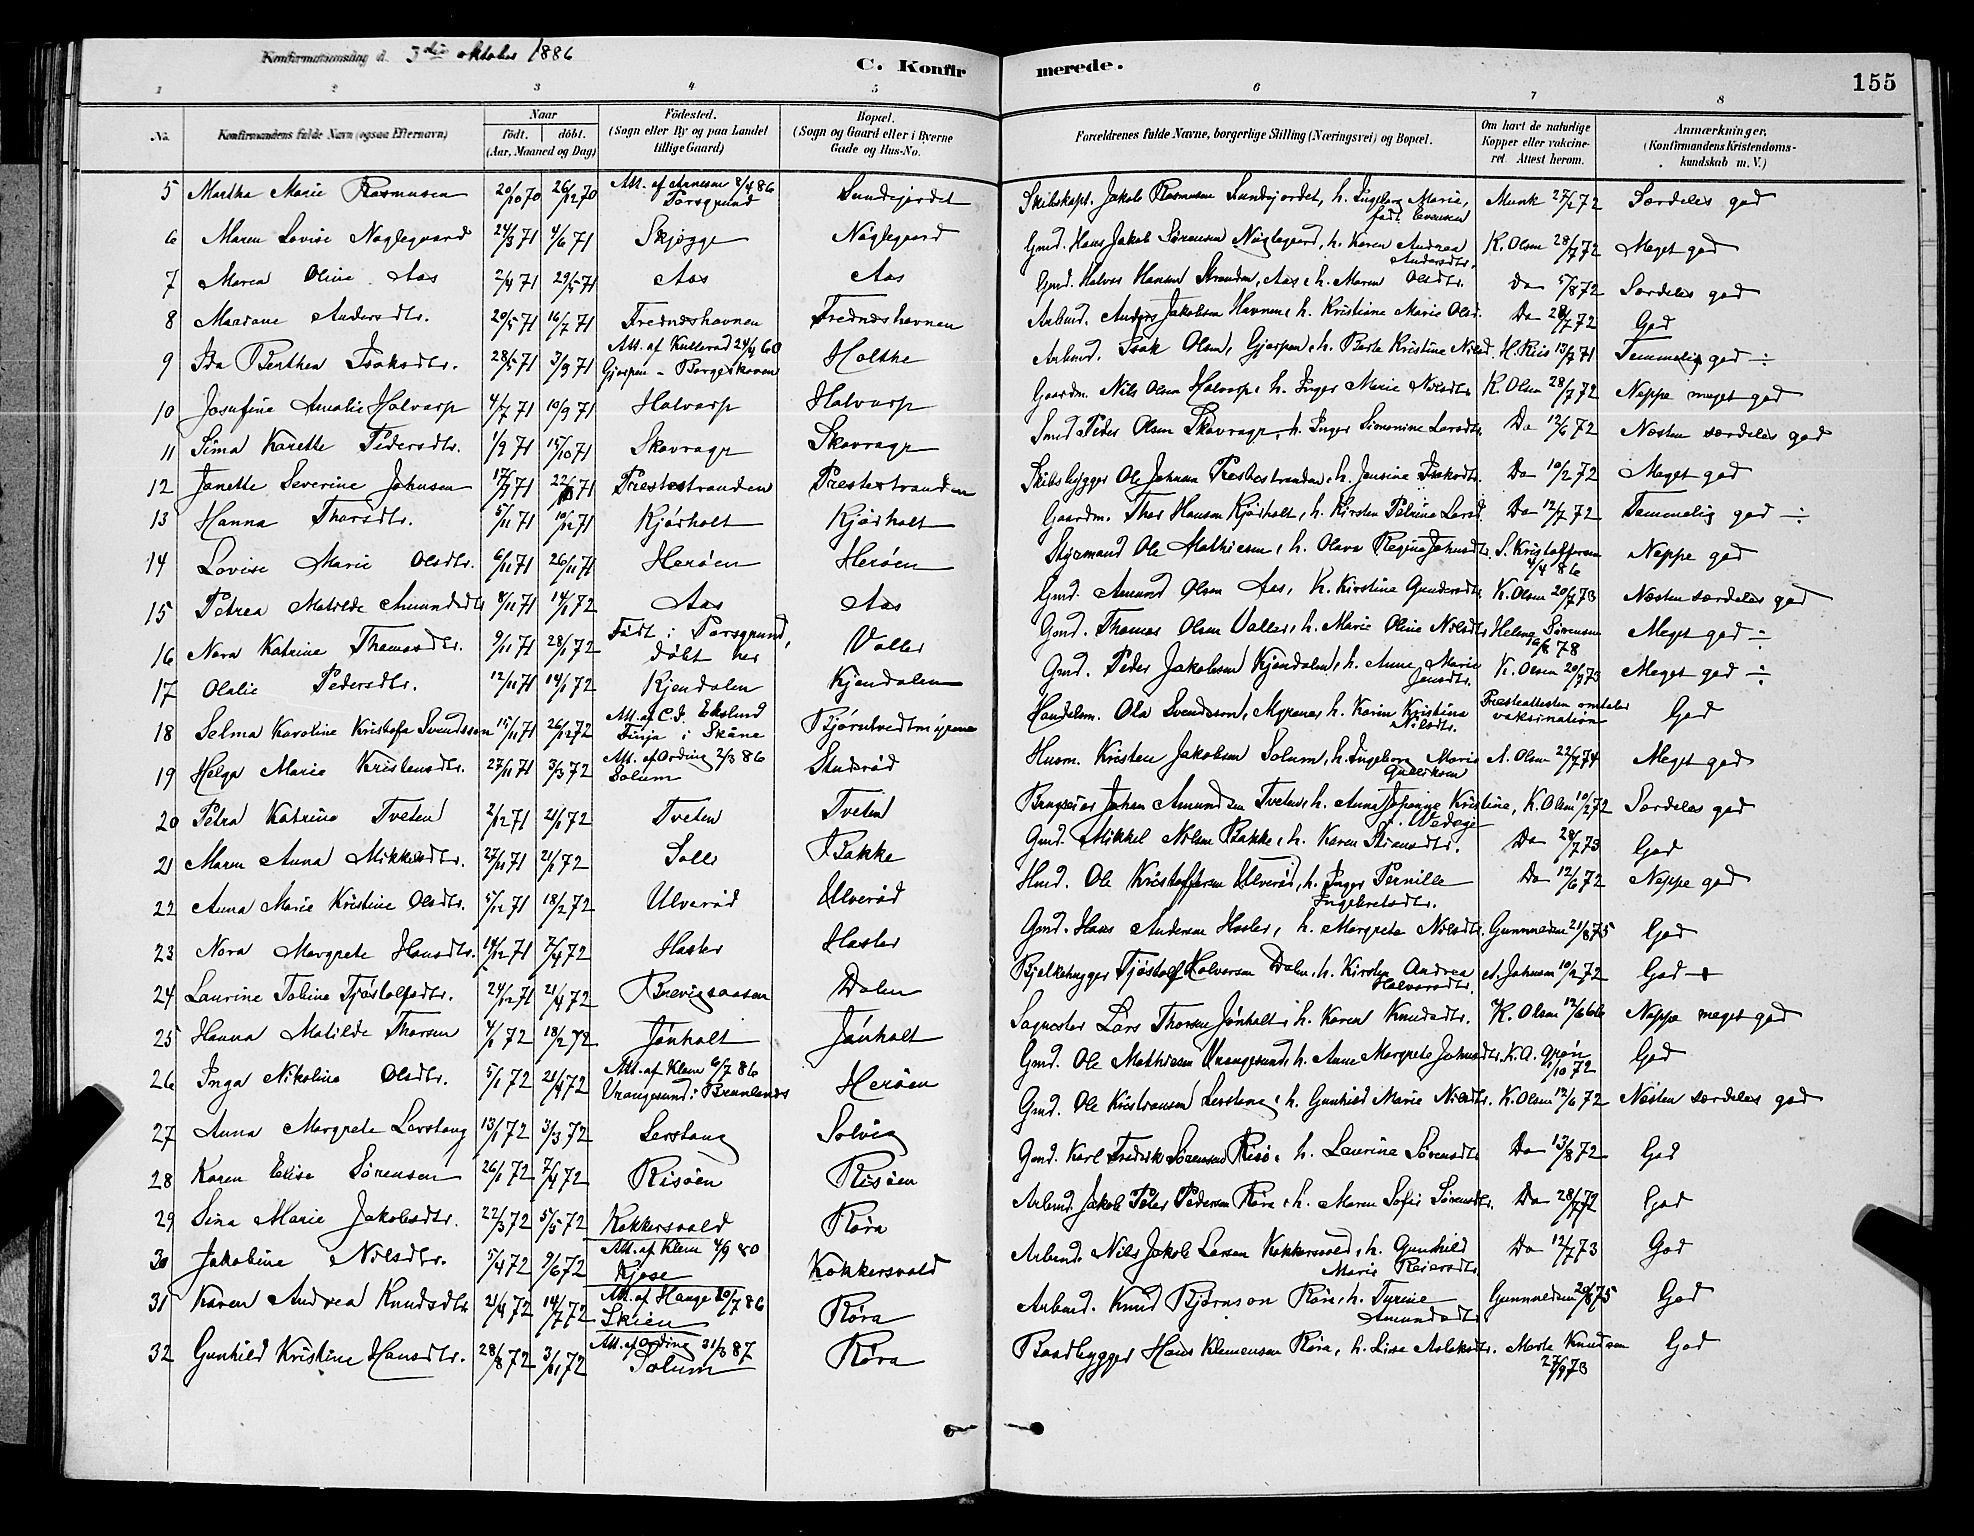 Konfirmationsdag d. 3die oktober 1886
C. Konfirmerede. 155
1 2 3 4 5 6 7 8
No. Konfirmandens fulde Navn (ogsaa Efternavn) Naar født. døbt. (Aar, Maaned og Dag) Fødested. (Sogn eller By og paa Landet tillige Gaard) Bopæl. (Sogn og Gaard eller i Byerne Gade og Hus-No. Forældrenes fulde Navne, borgerlige Stilling (Næringsvei) og Bopæl. Om havt de naturlige Kopper eller vakcineret. Attest herom. Anmærkninger. (Konfirmandens Kristendomskundskab m. V.)
5 Martha Marie Rasmusen 20/10 70 26/12 70 Att. af Arnesen 8/4 86 Porsgrund Sundejordet Skibskapt. Jakob Rasmusen Sundejordet, h. Ingeborg Marie, født Evensen Munk 27/2 72 Særdeles god
6 Maren Lovise Nøglegaard 24/3 71 4/6 71 Skjøgge Nøglegaard Gmd. Hans Jakob Sørensen Nøglegaard, h. Karen Andrea Andersdtr. K. Olsen 28/7 72 Meget god
7 Maren Oline Aas 2/4 71 29/5 71 Aas Aas Gmd. Halvor Hansen Stranden, Aas, h. Maren Olsdtr. Do 5/8 72 Særdeles god
8 Mariane Andersdtr. 20/5 71 16/7 71 Frednæshavnen Frednæshavnen Arbmd. Anders Jakobsen Havnen, h. Kristine Marie Olsd. Do 28/7 72 God
9 Ida Berthea Isaksdtr. 28/5 71 3/9 71 Att. af Kullerud 24/4 60 Gjerpen - Borgeskoven Holtke Arbmd. Isak Olsen, Gjerpen, h. Berte Kristine Nilsd. H. Riis 13/9 71 Temmelig god ÷
10 Josefine Amalie Halvarp 4/7 71 10/9 71 Halvarp Halvarp Gaardm. Nils Olsen Halvarp, h. Inger Marie Nilsdtr. K. Olsen 28/7 72 Neppe meget god
11 Sina Karette Pedersdtr. 1/9 71 15/10 71 Skavrager Skavrager Smed Peder Olsen Skavrager, h. Inger Simonine Larsdtr. Do 12/6 72 Næsten særdeles god
12 Janette Severine Johnsen 17/9 71 22/10 71 Prestestranden Prestestranden Skibsbygger Ole Johnsen Prestestranden, h. Jensine Isaksdtr. Do 10/2 72 Meget god
13 Hanna Thorsdtr. 5/11 71 10/12 71 Kjørholt Kjørholt Gaardm. Thor Hansen Kjørholt, h. Kirsten Petrine Larsd. Do 12/7 72 Temmelig god ÷
14 Lovise Marie Olsdtr. 6/11 71 26/11 71 Herøen Herøen Styrmand Ole Mathiesen, h. Olava Regine Johnsdtr. S. Kristoffersen 4/4 86 Neppe god
15 Petrea Matilde Amundsdtr 8/11 71 14/1 72 Aas Aas Gmd. Amund Olsen Aas, h. Kirstine Gundersdtr. K. Olsen 20/7 73 Næsten særdeles god
16 Nora Katrine Thomasdtr. 9/11 71 28/1 72 Født i Porsgrund, døbt her Valler Gmd. Thomas Olsen Valler, h. Marie Oline Nilsdtr Helene Sørensen 16/2 78 Meget god ÷
17 Olalie Pedersdtr. 12/11 71 14/1 72 Kjendalen Kjendalen Gmd. Peder Jakobsen Kjendalen, h. Anne Marie Jensdtr. K. Olsen 20/7 73 Meget god ÷
18 Selma Karoline Kristofa Svendsson 15/11 71 26/12 72 Att. af C. J. Ekelund Finja i Skåne Bjørntvedtmyrene Handelsm. Ola Svendsson, Myrene, h. Karin Kristina Nilsdtr. Presteattesten omtaler vaksination God
19 Helga Marie Kristensdtr. 27/11 71 3/3 72 Att. af Ording 2/3 86 Solum Studsrød Husm. Kristen Jakobsen Solum, h. Ingeborg Marie Gulliksen A. Olsen 22/7 74 Meget god
20 Petra Katrine Tveten 2/12 71 21/1 72 Tveten Tveten Brugseier Johan Amundsen Tveten, h. Anne Johanne Kristine, f. Wedøe K. Olsen 10/2 72 Særdeles god
21 Maren Anna Mikkelsdtr. 27/11 71 21/1 72 Solli Bakke Gmd. Mikkel Nilsen Bakke, h. Karen Stiansdtr. Do 28/7 73 God
22 Anna Marie Kristine Olsdtr. 5/12 71 18/2 72 Ulverød Ulverød Hmd. Ole Kristoffersen Ulverød, h. Inger Pernille Ingebretsdtr. Do 12/6 72 Neppe god
23 Nora Margrete Hansdtr. 14/12 71 7/4 72 Hasler Hasler Gmd. Hans Andersen Hasler, h. Margrete Nilsdtr. Gunnulsen 21/8 75 God
24 Laurine Tobine Tjøstolfsdtr. 24/12 71 21/4 72 Brevigsaasen Dalen Bjelkehugger Tjøstolf Halvorsen Dalen, h. Kirsten Andrea Halvorsdtr. A. Johnsen 10/2 72 God
25 Hanna Matilde Thorsen 4/1 72 18/2 72 Jønholt Jønholt Sagmester Lars Thorsen Jønholt, h. Karen Knudsdtr. K. Olsen 12/6 66 Neppe meget god
26 Inga Nikoline Olsdtr. 5/1 72 21/4 72 Att. af Klem 6/7 86 Vrangesund i Brunlanes Herøen Gmd. Ole Mathiesen Vrangesund, h. Anne Margrete Johnsdtr. K. A. Grøn 1/10 72 God
27 Anna Margrete Lerstang 13/1 72 3/3 72 Lerstang Solvig Gmd. Ole Kristiansen Lerstang, h. Gunhild Marie Nilsdtr. K. Olsen 12/6 72 Næsten særdeles god
28 Karen Elise Sørensen 26/1 72 7/4 72 Risøen Risøen Gmd. Karl Fredrik Sørensen Risø, h. Laurine Sørensdtr Do 13/8 72 God
29 Sina Marie Jakobsdtr. 22/3 72 5/5 72 Kokkersvold Røra Arbmd. Jakob Peter Pedersen Røra, h. Maren Sofie Sørensdtr. Do 28/7 72 God
30 Jakobine Nilsdtr. 5/4 72 9/6 72 Att. af Klem 4/9 80 Kjose Kokkersvold Arbmd. Nils Jakob Larsen Kokkersvold, h. Gunhild Marie Reiersdtr. Do 12/7 73 God
31 Karen Andrea Knudsdtr 21/4 72 14/7 72 Att. af Hauge 20/7 86 Skien Røra Arbmd. Knud Bjørnson Røra, h. Turine Amundsdtr Gunnulsen 20/8 75 God
32 Gunhild Kristine Hansdtr. 28/8 72 3/11 72 Att. af Ording 31/3 87 Solum Røra Baadbygger Hans Klemensen Røra, h. Lise Aslaksdtr. Marte Knudsen 27/9 73 God